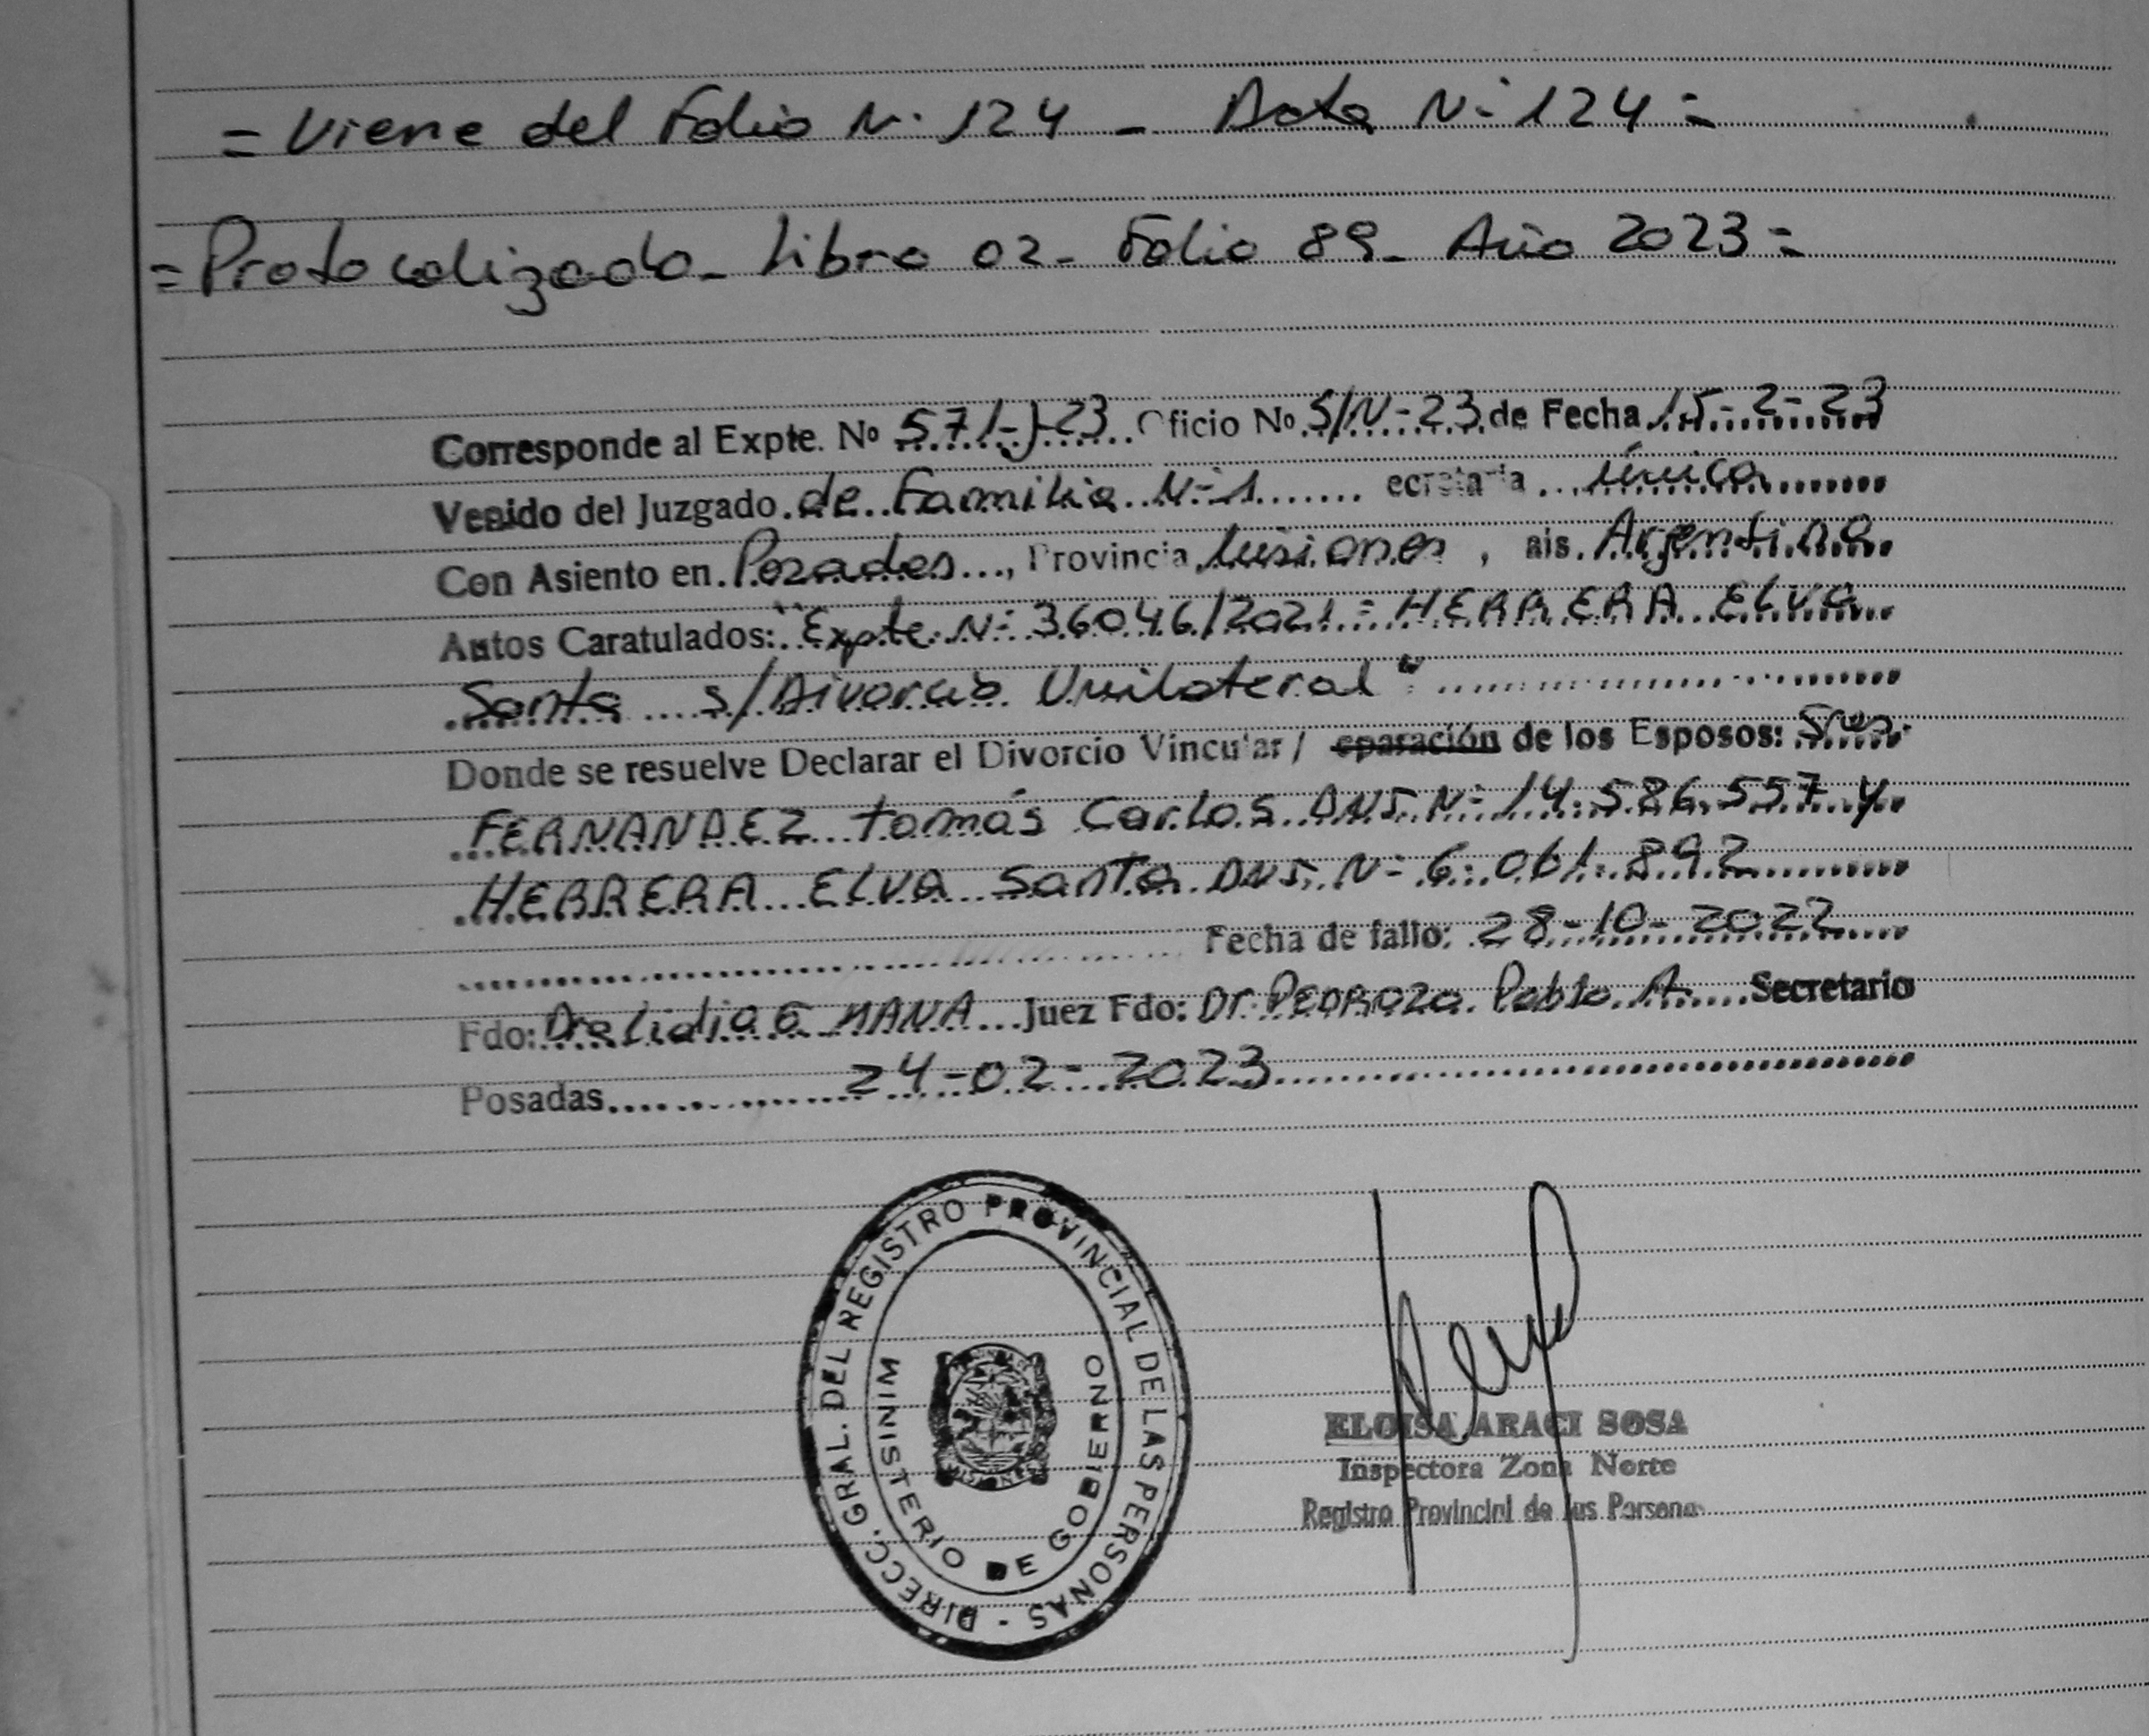 = Viene del Folio N° 124 - Acta N° 124 =
= Protocolizado - Libro 02 - Folio 89 - Año 2023 =
Corresponde al Expte. Nº 571-J-23 Oficio Nº S/N-23 de Fecha 15-2-23
Venido del Juzgado de Familia N° 1 ecretaria única
Con Asiento en Posadas, Provincia Misiones, ais Argentina
Autos Caratulados: "Expte N° 36046/2021 = HERRERA ELVA
Santa s/Divorcio Unilateral"
Donde se resuelve Declarar el Divorcio Vincular / eparación de los Esposos: Sres.
FERNANDEZ Tomás Carlos DNI N° 14.586.557 y
HERRERA ELVA Santa DNI N° 6.061.892
Fecha de fallo: 28-10-2022
Fdo: Dra Lidia E MANA Juez Fdo: Dr. PEDROZA Pablo A. Secretario
Posadas 24-02-2023
DIRECC. GRAL. DEL REGISTRO PROVINCIAL DE LAS PERSONAS -
MINISTERIO DE GOBIERNO
MISIONES
ELOISA ARACI SOSA
Inspectora Zona Norte
Registro Provincial de las Personas